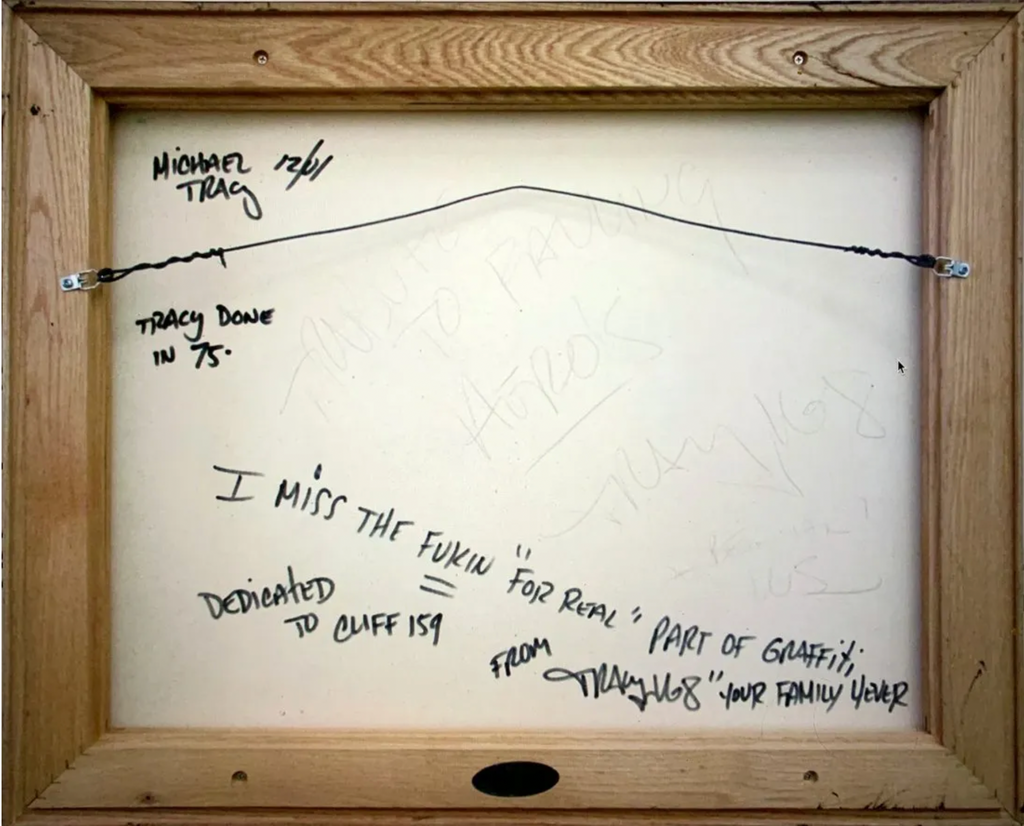 MICHAEL 12/01
TRACY
TRACY DONE
IN 75.
TO FADING
TRACY 168
I MISS THE FUKIN "FOR REAL" PART OF GRAFFiti
DEDICATED
TO CLIFF 159
FROM
TRACY 168 "YOUR FAMILY 4EVER